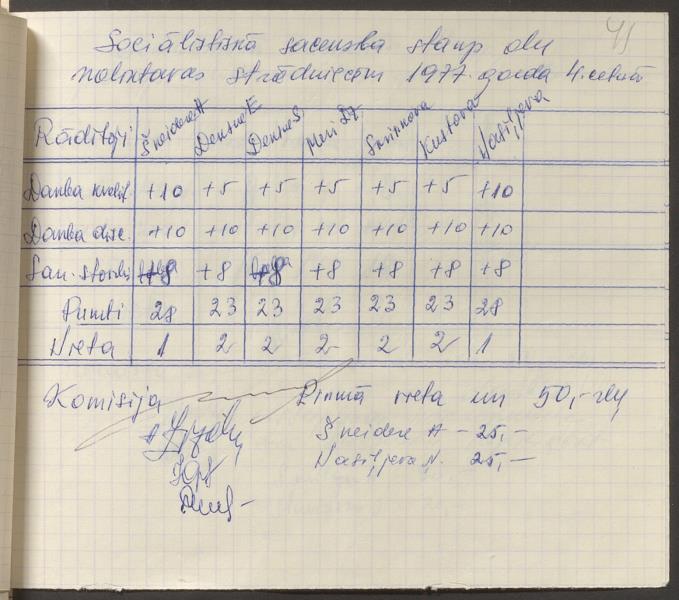 Sociālistiskā sacensība starp oļu
noliktavas strādniecēm 1977. gada 4. cetur.
Rādītāji Šneidere A Densne E Densne S Meri Dz Smirnova Kustova Vasiļjeva
Darba kvalit +10 +5 +5 +5 +5 +5 +10
Darba disc. +10 +10 +10 +10 +10 +10 +10
San. stāvoklis +8 +8 +8 +8 +8 +8 +8
Punkti 28 23 23 23 23 23 28
Vieta 1 2 2 2 2 2 1
Komisija Pirmā vieta un 50,- rbļ
Šneidere A - 25,-
Vasiļjeva N. 25,-